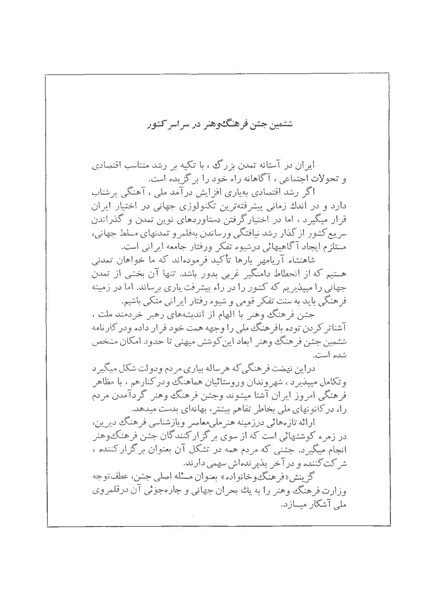 ششمین جشن فرهنگ‌وهنر در سراسر کشور
ایران در آستانه تمدن بزرگ ، با تکیه بر رشد متناسب اقتصادی
و تحولات اجتماعی ، آگاهانه راه خود را برگزیده است.
اگر رشد اقتصادی به‌یاری افزایش درآمد ملی ، آهنگی پرشتاب
دارد و در اندک زمانی پیشرفته‌ترین تکنولوژی جهانی در اختیار ایران
قرار میگیرد ، اما در اختیارگرفتن دستاوردهای نوین تمدن و گذراندن
سریع کشور از گذار رشد نیافتگی ورساندن به‌قلمرو تمدنهای مسلط جهانی،
مستلزم ایجاد آگاهیهائی درشیوه تفکر ورفتار جامعه ایرانی است.
شاهنشاه آریامهر بارها تأکید فرموده‌اند که ما خواهان تمدنی
هستیم که از انحطاط دامنگیر غربی بدور باشد. تنها آن بخشی از تمدن
جهانی را میپذیریم که کشور را در راه پیشرفت یاری برساند. اما در زمینه
فرهنگی باید به سنت تفکر قومی و شیوه رفتار ایرانی متکی باشیم.
جشن فرهنگ وهنر با الهام از اندیشه‌های رهبر خردمند ملت ،
آشناترکردن توده بافرهنگ ملی را وجهه همت خود قرار داده ودرکارنامه
ششمین جشن فرهنگ وهنر ابعاد این‌کوشش میهنی تا حدود امکان مشخص
شده است.
در این نهضت فرهنگی که هرساله بیاری مردم ودولت شکل میگیرد
وتکامل میپذیرد ، شهروندان وروستائیان هماهنگ ودرکنارهم ، با مظاهر
فرهنگی امروز ایران آشنا میشوند وجشن فرهنگ وهنر گردآمدن مردم
را، درکانونهای ملی بخاطر تفاهم بیشتر، بهانه‌ای بدست میدهد.
ارائه تازه‌هائی درزمینه هنرملی‌معاصر وبازشناسی فرهنگ دیرین،
در زمره کوششهائی است که از سوی برگزارکنندگان جشن فرهنگ‌وهنر
انجام میگیرد. جشنی که مردم همه در تشکل آن بعنوان برگزارکننده ،
شرکت‌کننده و درآخر پذیرنده‌اش سهمی دارند.
گزینش «فرهنگ‌وخانواده» بعنوان مسئله اصلی جشن، عطف‌توجه
وزارت فرهنگ وهنر را به یک بحران جهانی و چاره‌جوئی آن درقلمروی
ملی آشکار میسازد.